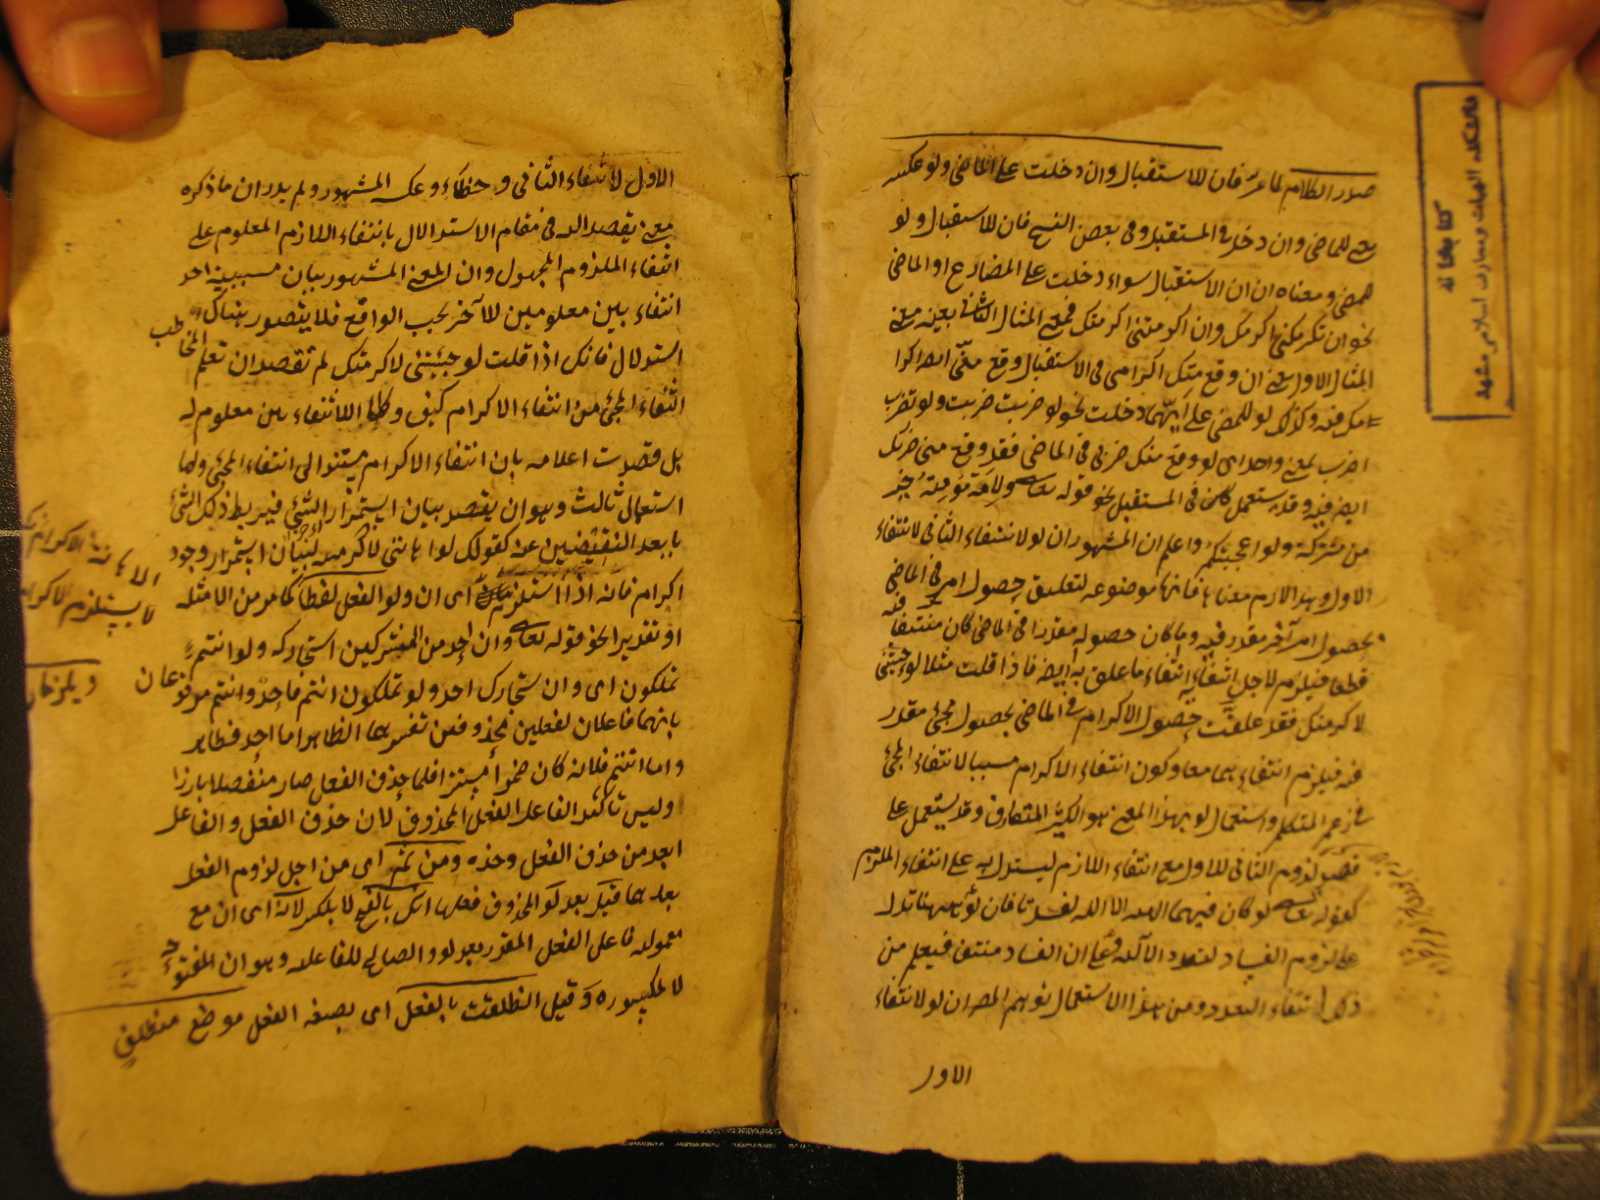 صدر الكلام لما عرف فان للاستقبال وان دخلت على الماضى ولو عكسه
يعنى للماضى وان دخل على المستقبل وفى بعض النسخ فان للاستقبال ولو
للمضى ومعناه ان ان الاستقبال سواء دخلت على المضارع او الماضى
نحو ان تكرمنى اكرمك وان اكرمتنى اكرمتك فمعنى المثال الثانى بعينه معنى
المثال الاول يعنى ان وقع منك اكرامى فى الاستقبال وقع منى ايضا اكرا
مك فيه وكذلك لو للمضى على ايهما دخلت نحو لو ضربت ضربت ولو تضرب
اضرب بمعنى واحد اى لو وقع منك ضربى فى الماضى فقد وقع منى ضربك
ايضا فيه وقد يستعمل فى المستقبل نحو قوله تعالى ولامة مؤمنة خير
من مشركة ولو اعجبتكم واعلم ان المشهور ان لو لانتفاء الثانى لانتفاء
الاول وهذا لازم معناها فانها موضوعة لتعليق حصول امر فى الماضى
بحصول امر آخر مقدر فيه وما كان حصوله مقدرا فى الماضى كان منتفيا فيه
قطعا فيلزم لاجل انتفائه انتفاء ما علق به ايضا فاذا قلت مثلا لو جئتنى
لاكرمتك فقد علقت حصول الاكرام فى الماضى بحصول مجئ مقدر
فيه فيلزم انتفاءهما معا وكون انتفاء الاكرام مسببا لانتفاء المجئ
فى زعم المتكلم واستعمال لو بهذا المعنى هو الكثير المتعارف وقد يستعمل على
قصد لزوم الثانى للاول مع انتفاء اللازم ليستدل به على انتفاء الملزوم
كقوله تعالى لو كان فيهما الهة الا الله لفسدتا فان لو ههنا تدل
على لزوم الفساد لتعدد الآلهة وعلى ان الفساد منتف فيعلم من
ذلك انتفاء التعدد ومن هذا الاستعمال توهم المص ان لو لانتفاء
الاول
كتابخانه
دانشكده الهيات ومعارف اسلامى مشهد
الاول لانتفاء الثانى وخطاء وعكس المشهور ولم يدر ان ما ذكره
معنى يقصد اليه فى مقام الاستدلال بانتفاء اللازم المعلوم على
انتفاء الملزوم المجهول وان المعنى المشهور بيان سببية احد
انتفاء بين معلومين للآخر بحسب الواقع فلا يتصور هناك
استدلال فانك اذا قلت لو جئتنى لاكرمتك لم تقصد ان تعلم المخاطب
انتفاء المجئ من انتفاء الاكرام كيف وكلا الانتفاء ين معلوم له
بل قصدت اعلامه بان انتفاء الاكرام مستند الى انتفاء المجئ ولها
استعمال ثالث وهو ان يقصد بيان استمرار الشئ فيربط ذلك الشئ
بابعد النقيضين عنه كقولك لو اهاننى لاكرمته لبيان استمرار وجود
اكرام فانه اذا استلزم اى ان ولو الفعل لفظا كما مر من الامثلة
او تقديرا نحو قوله تعالى وان احد من المشركين استجارك ولو انتم
تملكون اى وان ستجارك احد ولو تملكون انتم فاحد وانتم مرفوعان
بانهما فاعلان لفعلين محذوفين تفسرهما الظاهر اما احد فظاهر
واما انتم فلانه كان ضميرا مستترا فلما حذف الفعل صار منفصلا بارزا
وليس تأكيد الفاعل الفعل المحذوف لان حذف الفعل والفاعل
ابعد من حذف الفعل وحده ومن ثم اى من اجل لزوم الفعل
بعدهما قيل بعد لو المحذوف فعلها انك بالفتح لا بالكسر لانه اى ان مع
معموله فاعل الفعل المقدر بعد لو والصالح للفاعلية وهو ان المفتوحة
لا المكسورة وقيل انطلقت بالفعل اى بصيغة الفعل موضع منطلق
الاهانة الاكرام
لا يستلزم الاكرام